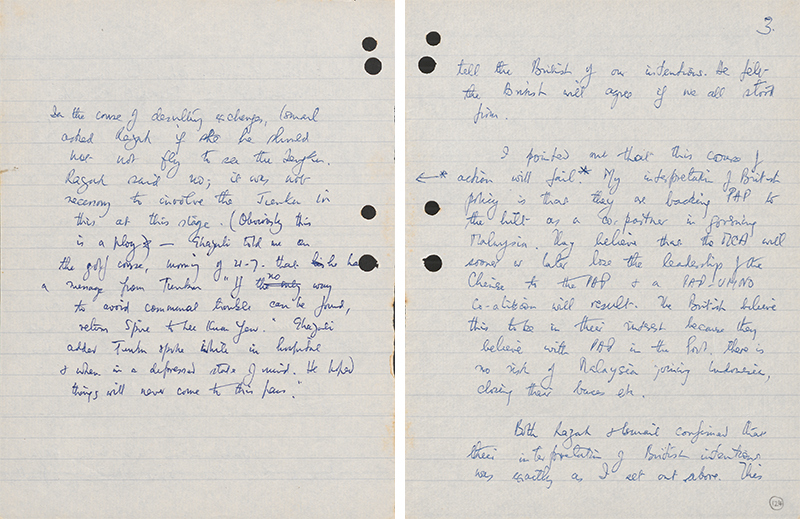 In the course of desulting exchanges, Ismail
asked Razak if he should
not not fly to see the Tengku.
Razak said no; it was not
necessary to involve the Tunku in
this at this stage. (Obviously this
is a ploy) — Ghazali told me on
the golf course, morning of 21-7. that he had
a message from Tunku "If no way
to avoid communal trouble can be found,
return S'pore to Lee Kuan Yew." Ghazali
added Tunku spoke while in hospital
& when in a depressed state of mind. He hoped
things will never come to this pass."
3.
tell the British of our intentions. He felt
the British will agree if we all stood
firm.
I pointed out that this course of
← * action will fail.* My interpretation of British
policy is that they are backing PAP to
the hilt as a co-partner in governing
Malaysia. They believe that the MCA will
sooner or later lose the leadership of the
Chinese to the PAP & a PAP-UMNO
Co-alition will result. The British believe
this to be in their interest because they
believe with PAP in the Govt. there is
no risk of Malaysia joining Indonesia,
closing their bases etc.
Both Razak & Ismail confirmed that
their interpretation of British intentions
was exactly as I set out above. This